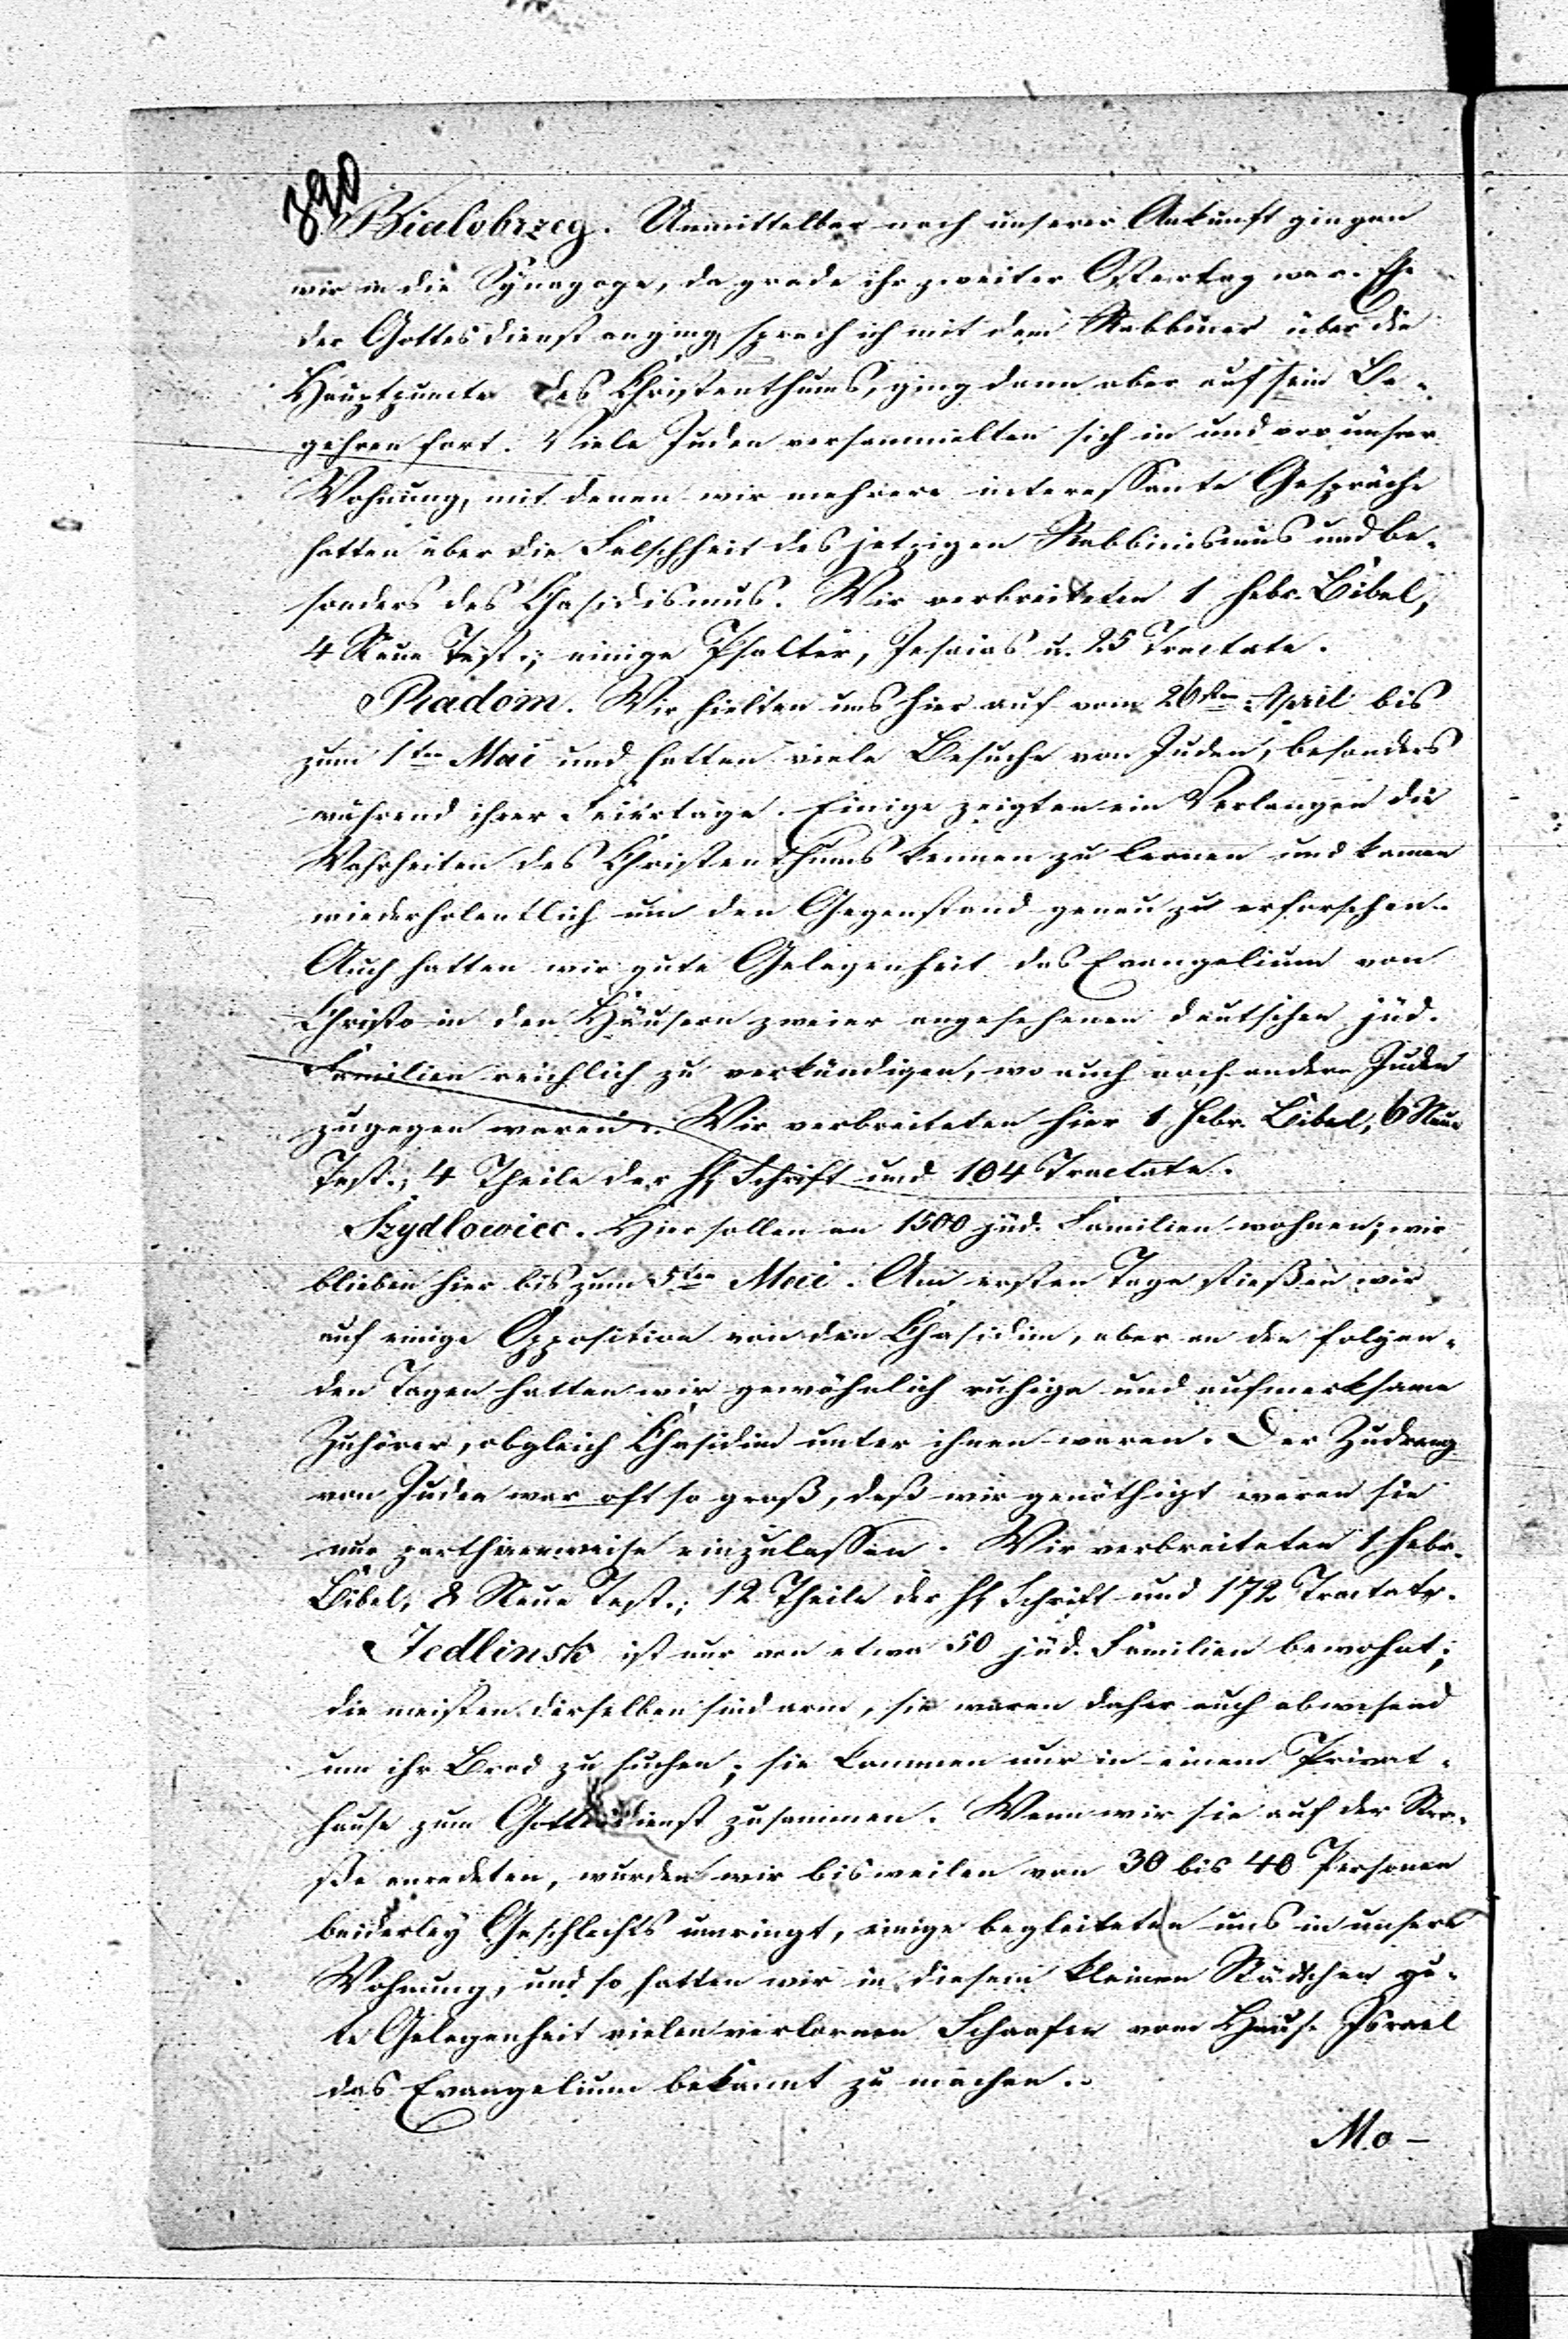 390
Bialobrzeg. Unmittelbar nach unserer Ankunft gingen
wir in die Synagoge, da grade ihr zweiter Ostertag war. Ehe
der Gottesdienst anging, sprach ich mit dem Rabbiner über die
Hauptpuncte des Christenthums, ging dann aber auf sein Be-
gehren fort. Viele Juden versammelten sich in und vor unsrer
Wohnung, mit denen wir mehrere interessante Gespräche
hatten über die Falschheit des jetzigen Rabbinismus und be-
sonders des Chasidismus. Wir verbreiteten 1 hebr. Bibel,
4 Neue Test., einige Psalter, Jesaias u. 25 Tractate.
Radom. Wir hielten uns hier auf vom 26sten April bis
zum 1ten Mai und hatten viele Besuche von Juden, besonders
während ihrer Feiertage. Einige zeigten ein Verlangen die
Wahrheiten des Christenthums kennen zu lernen und kamen
wiederholentlich um den Gegenstand genau zu erforschen.
Auch hatten wir gute Gelegenheit das Evangelium von
Christo in den Häusern zweier angesehenen deutschen jüd.
Familien reichlich zu verkündigen, wo auch noch andere Juden
zugegen waren. Wir verbreiteten hier 1 hebr. Bibel, 6 Neue
Test., 4 Theile der hl Schrift und 104 Tractate.
Szydlowiec. Hier sollen an 1500 jüd. Familien wohnen; wir
blieben hier bis zum 5ten Mai. Am ersten Tage stießen wir
auf einige Opposition von den Chasidim, aber an den folgen-
den Tagen hatten wir gewöhnlich ruhige und aufmerksame
Zuhörer, obgleich Chasidim unter ihnen waren. Der Zudrang
von Juden war oft so groß, daß wir genöthigt waren sie
nur parthieenweise einzulassen. Wir verbreiteten 1 hebr.
Bibel, 8 Neue Test., 12 Theile der hl Schrift und 172 Tractate.
Jedlinsk ist nur von etwa 50 jüd. Familien bewohnt;
die meisten derselben sind arm, sie waren daher auch abwesend
um ihr Brod zu suchen; sie kommen nur in einem Privat-
hause zum Gottesdienst zusammen. Wenn wir sie auf der Stra-
ße anredeten, wurden wir bisweilen von 30 bis 40 Personen
beiderley Geschlechts umringt, einige begleiteten uns in unsere
Wohnung, und so hatten wir in diesem kleinen Städtchen gu-
te Gelegenheit vielen verlornen Schaafen vom Hause Israel
das Evangelium bekannt zu machen.
Mo-